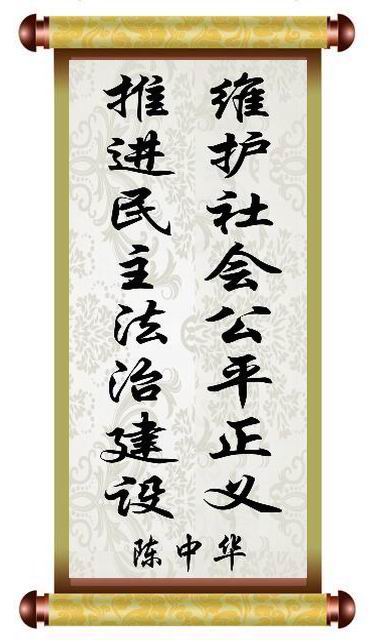 维护社会公平正义
推进民主法治建设
陈中华